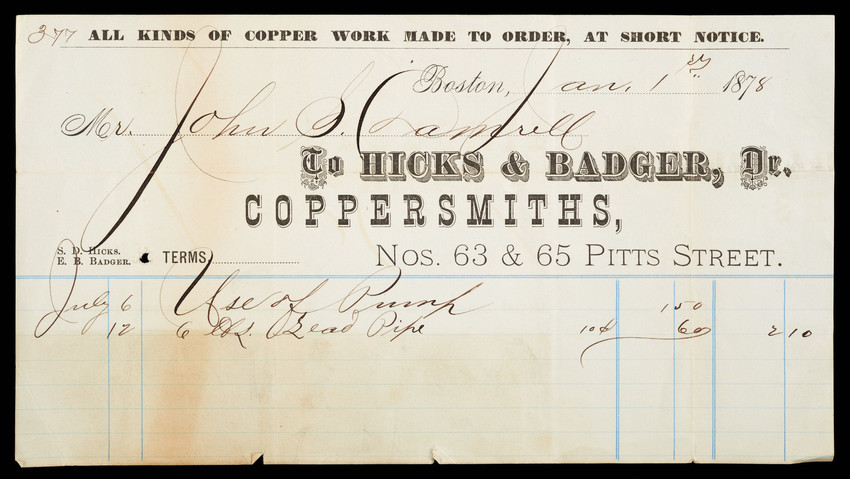 377 ALL KINDS OF COPPER WORK MADE TO ORDER, AT SHORT NOTICE.
Boston, Jan. 1st 1878
Mr. John S. Damrell
To HICKS & BADGER, Dr.
COPPERSMITHS,
S. D. HICKS.
E. B. BADGER.
TERMS
Nos. 63 & 65 PITTS STREET.
July 6 Use of Pump 1 50
12 6 lbs. Lead Pipe 10¢ 60 2 10